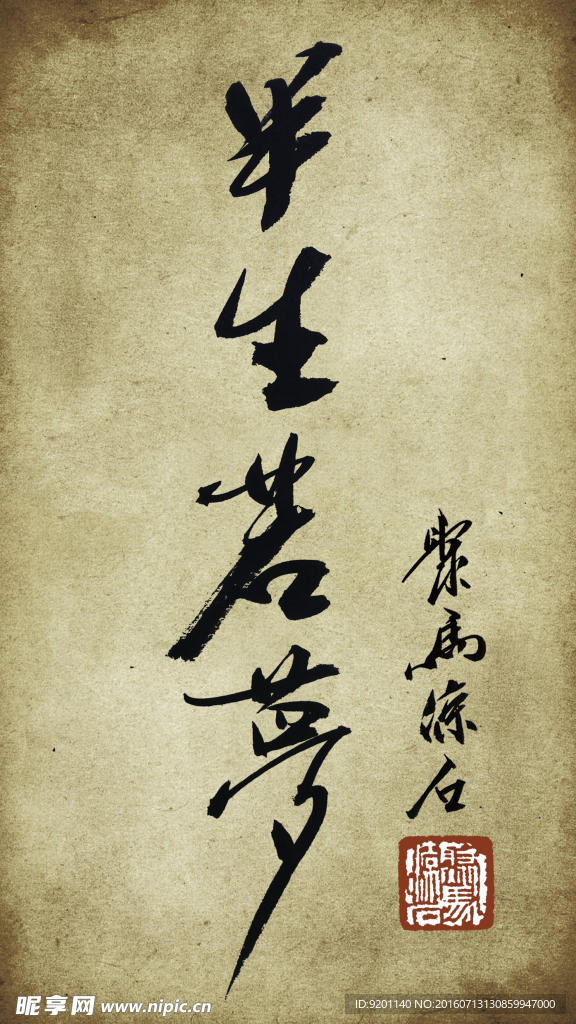 半生若夢
聚馬傢石
昵享网 www.nipic.cn
ID:9201140 NO:20160713130859947000